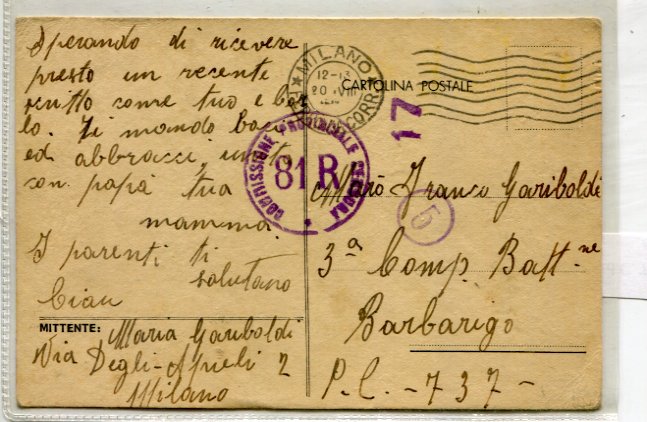 Sperando di ricevere
presto un recente
scritto come tuo e bel
lo. Ti mando baci
ed abbracci, unito
con papà tua
mamma.
I parenti ti
salutano
Ciau
MITTENTE: Maria Gariboldi
Via Degli 2
Milano
MILANO
12-13
20 VIII
CORR.
CARTOLINA POSTALE
17
COMMISSIONE PROVINCIALE CENSURA
81R
5
Franco Gariboldi
3ª Comp. Batt-ne
Barbarigo
P.C. - 737 -